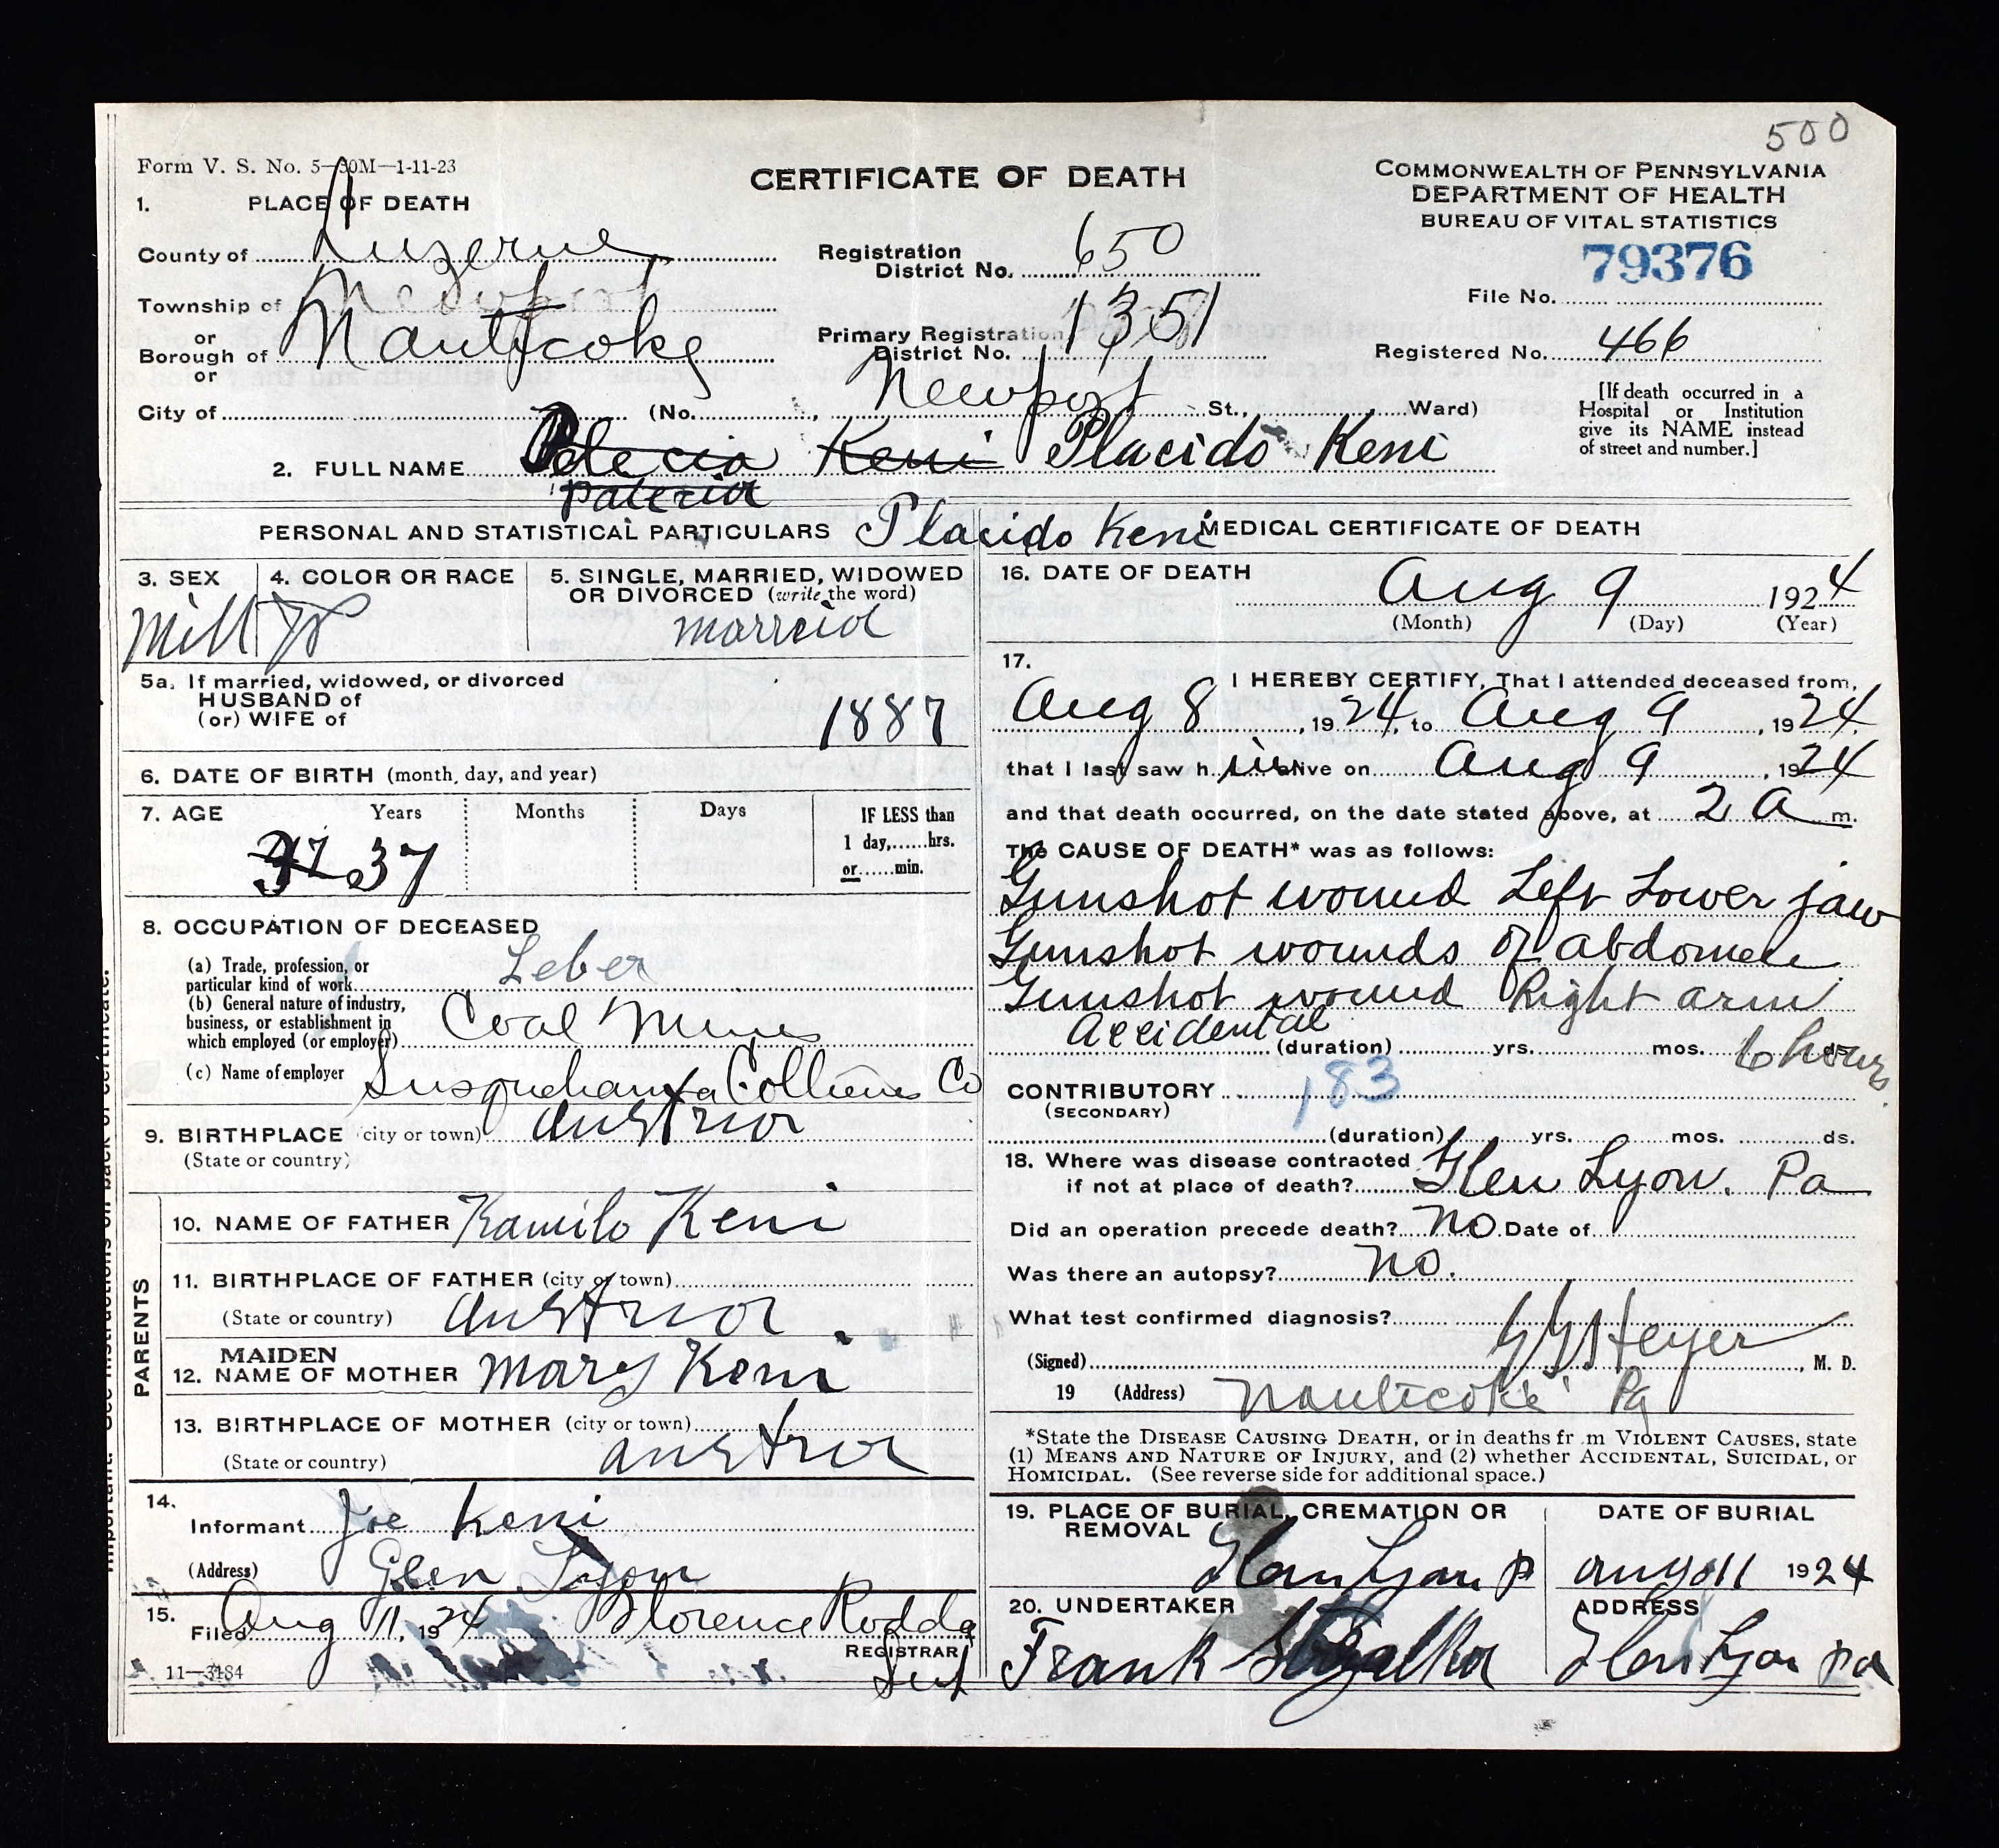 500
Form V. S. No. 5—50M—1-11-23
CERTIFICATE OF DEATH
COMMONWEALTH OF PENNSYLVANIA
DEPARTMENT OF HEALTH
BUREAU OF VITAL STATISTICS
1. PLACE OF DEATH
County of Luzerne
Registration District No. 650
79376
File No.
Township of Newport
or
Borough of Nanticoke
or
Primary Registration District No. 1351
Registered No. 466
City of (No. , Newport St., Ward)
[If death occurred in a Hospital or Institution give its NAME instead of street and number.]
2. FULL NAME Keni Placido Keni
Placido Keni
PERSONAL AND STATISTICAL PARTICULARS
3. SEX
Mill
4. COLOR OR RACE
W
5. SINGLE, MARRIED, WIDOWED OR DIVORCED (write the word)
marreid
5a. If married, widowed, or divorced
HUSBAND of
(or) WIFE of
1887
6. DATE OF BIRTH (month, day, and year)
7. AGE Years Months Days
37
IF LESS than
1 day,......hrs.
or......min.
8. OCCUPATION OF DECEASED
(a) Trade, profession, or particular kind of work Leber
(b) General nature of industry, business, or establishment in which employed (or employer) Coal Mines
(c) Name of employer Susquehanna Collieries Co
9. BIRTHPLACE (city or town) Austria
(State or country)
PARENTS
10. NAME OF FATHER Kamilo Keni
11. BIRTHPLACE OF FATHER (city or town)
(State or country) Austria
12. MAIDEN NAME OF MOTHER Mary Keni
13. BIRTHPLACE OF MOTHER (city or town)
(State or country) Austria
14.
Informant Joe Keni
(Address) Glen Lyon
15.
Filed Aug 11, 1924 Florence Rodda
REGISTRAR
11—3184
MEDICAL CERTIFICATE OF DEATH
16. DATE OF DEATH
Aug 9 1924
(Month) (Day) (Year)
17.
I HEREBY CERTIFY, That I attended deceased from
Aug 8, 1924, to Aug 9, 1924
that I last saw him alive on Aug 9, 1924
and that death occurred, on the date stated above, at 2 A m.
The CAUSE OF DEATH* was as follows:
Gunshot wound Left Lower jaw
Gunshot wounds of abdomen
Gunshot wound Right arm
Accidental
(duration) yrs. mos. 6 hours ds.
CONTRIBUTORY 183
(SECONDARY)
(duration) yrs. mos. ds.
18. Where was disease contracted
if not at place of death? Glen Lyon. Pa
Did an operation precede death? No. Date of
Was there an autopsy? No.
What test confirmed diagnosis?
(Signed) Heyer, M. D.
19 (Address) Nanticoke Pa
*State the DISEASE CAUSING DEATH, or in deaths fr m VIOLENT CAUSES, state
(1) MEANS AND NATURE OF INJURY, and (2) whether ACCIDENTAL, SUICIDAL, or
HOMICIDAL. (See reverse side for additional space.)
19. PLACE OF BURIAL, CREMATION OR REMOVAL
Glen Lyon P
DATE OF BURIAL
Aug 11 1924
20. UNDERTAKER
Frank
ADDRESS
Glen Lyon Pa